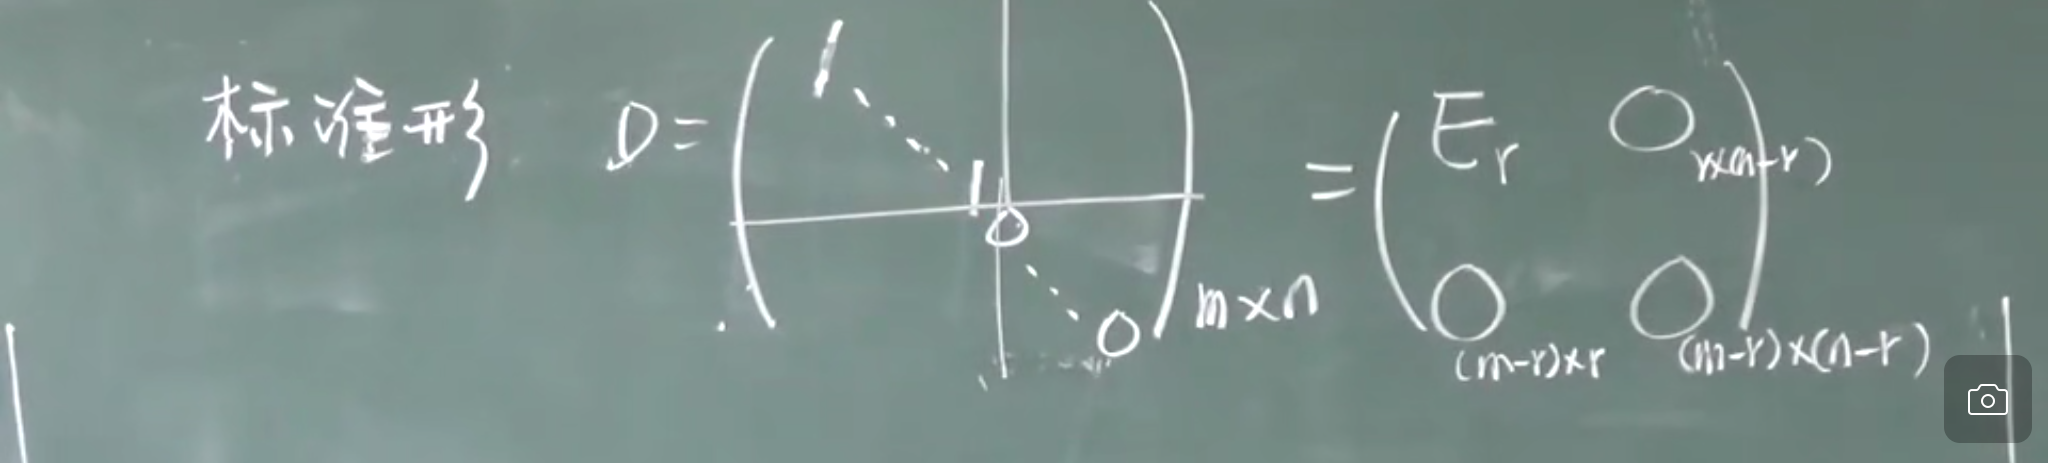 标准形 D = ( 1 ⋱ 1 0 ⋱ 0 ) m×n = ( E_r O_{r×(n-r)}
O_{(m-r)×r} O_{(m-r)×(n-r)} )